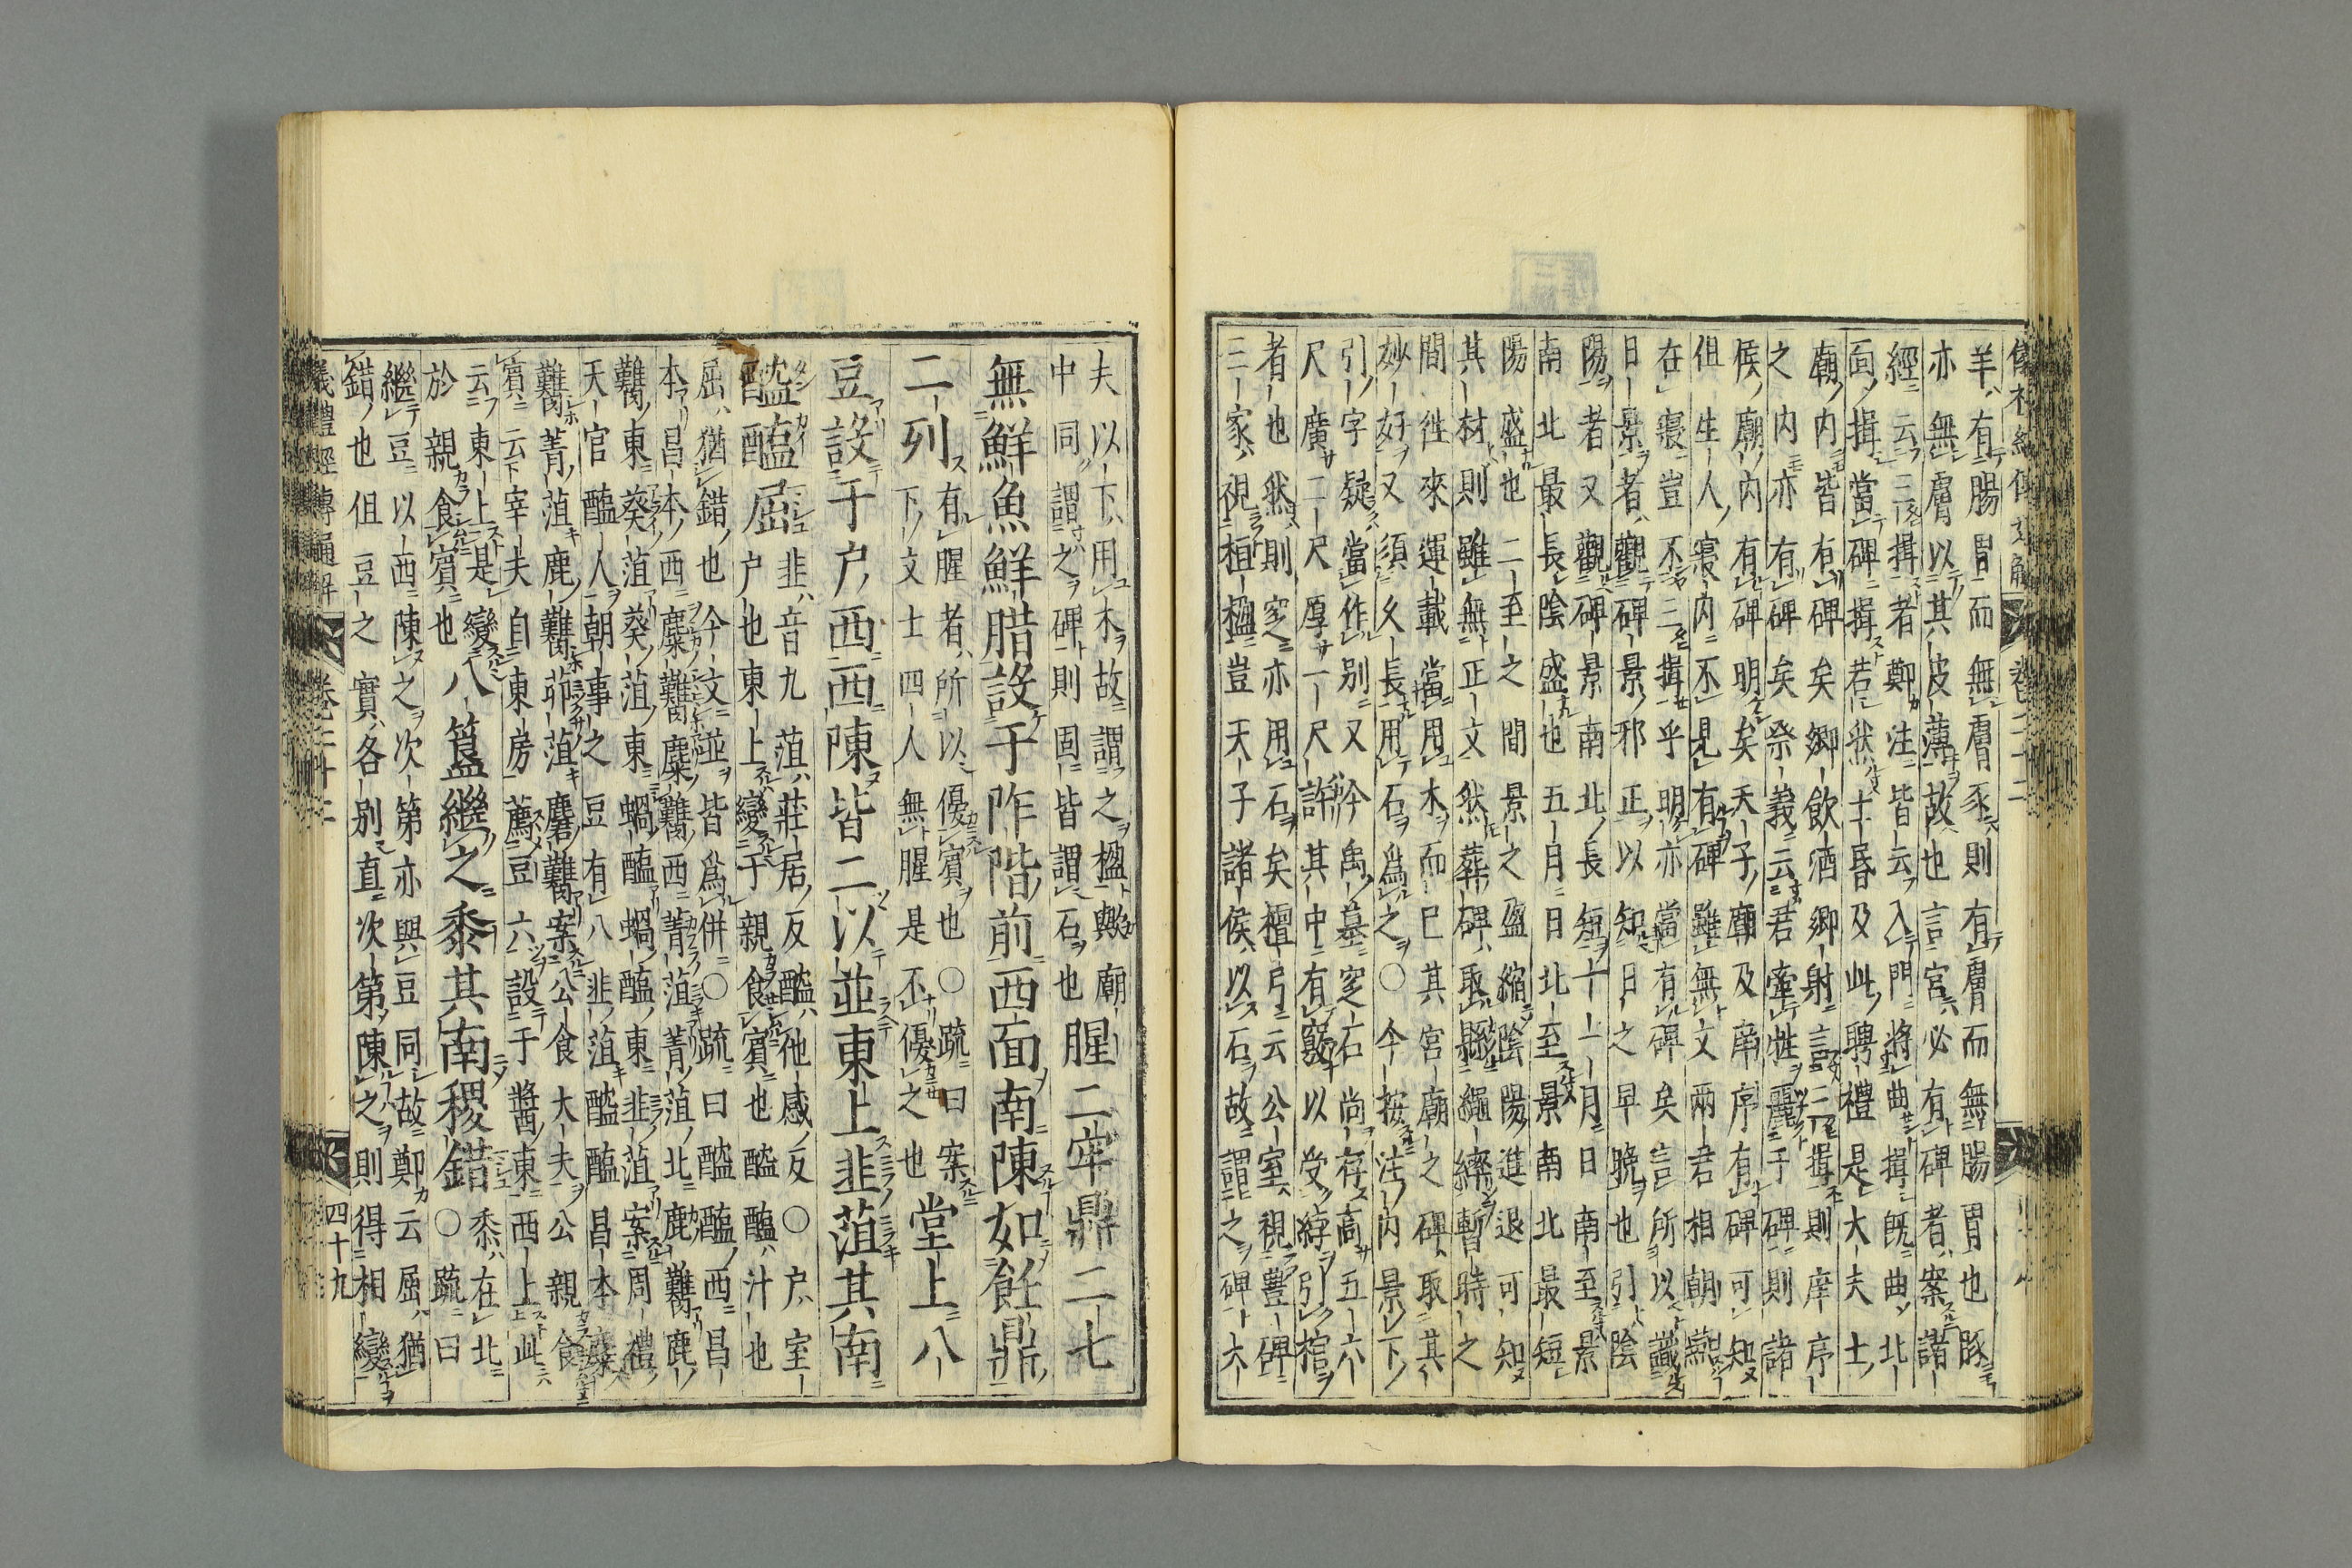 羊有腸胃而無膚豕則有膚而無腸胃也豚
亦無膚以其皮薄故也言宮必有碑者案諸
經云三揖者鄭注皆云入門將曲揖既曲北
面揖當碑揖若然士昏及此聘禮是大夫士
廟內皆有碑矣鄉飲酒鄉射言三揖則庠序
之內亦有碑矣祭義云君牽牲麗于碑則諸
侯廟內有碑明矣天子廟及庠序有碑可知
但生人寢內不見有碑雖無文兩君相朝燕
在寢豈不三揖乎明亦當有碑矣言所以識
日景者觀碑景邪正以知日之早晚也引陰
陽者又觀碑景南北長短十一月日南至景
南北最長陰盛也五月日北至景南北最短
陽盛也二至之間景之盈縮陰陽進退可知
其材則雖無正文然葬碑取縣繩繂暫時之
間往來運載當用木而已其宮廟之碑取其
妙好又須久長用石爲之○今按注內景下
引字疑當作別又今禹墓窆石尚存高五六
尺廣二尺厚一尺許其中有竅以受綍引棺
者也然則窆亦用石矣檀弓云公室視豐碑
三家視桓楹豈天子諸侯以石故謂之碑大
夫以下用木故謂之楹歟廟
中同謂之碑則固皆謂石也
腥二牢鼎二七
無鮮魚鮮腊設于阼階前西面南陳如飪鼎
二列
有腥者所以優賓也○疏曰案
下文士四人無腥是不優之也
堂上八
豆設于戶西西陳皆二以並東上韭菹其南
醓醢屈
韭音九菹莊居反醓他感反○戶室
戶也東上變于親食賓也醓醢汁也
屈猶錯也今文並皆爲併○疏曰醓醢西昌
本昌本西麋臡麋臡西菁菹菁菹北鹿臡鹿
臡東葵菹葵菹東蝸醢蝸醢東韭菹案周禮
天官醢人朝事之豆有八韭菹醓醢昌本麋
臡菁菹鹿臡茆菹麇臡案公食大夫公親食
賓云宰夫自東房薦豆六設于醬東西上此
云東上是變
於親食賓也
八簋繼之黍其南稷錯
黍在北
○疏曰
繼豆以西陳之次第亦與豆同故鄭云屈猶
錯也但豆之實各別直次第陳之則得相變
儀禮經傳通解 卷二十二 四十九